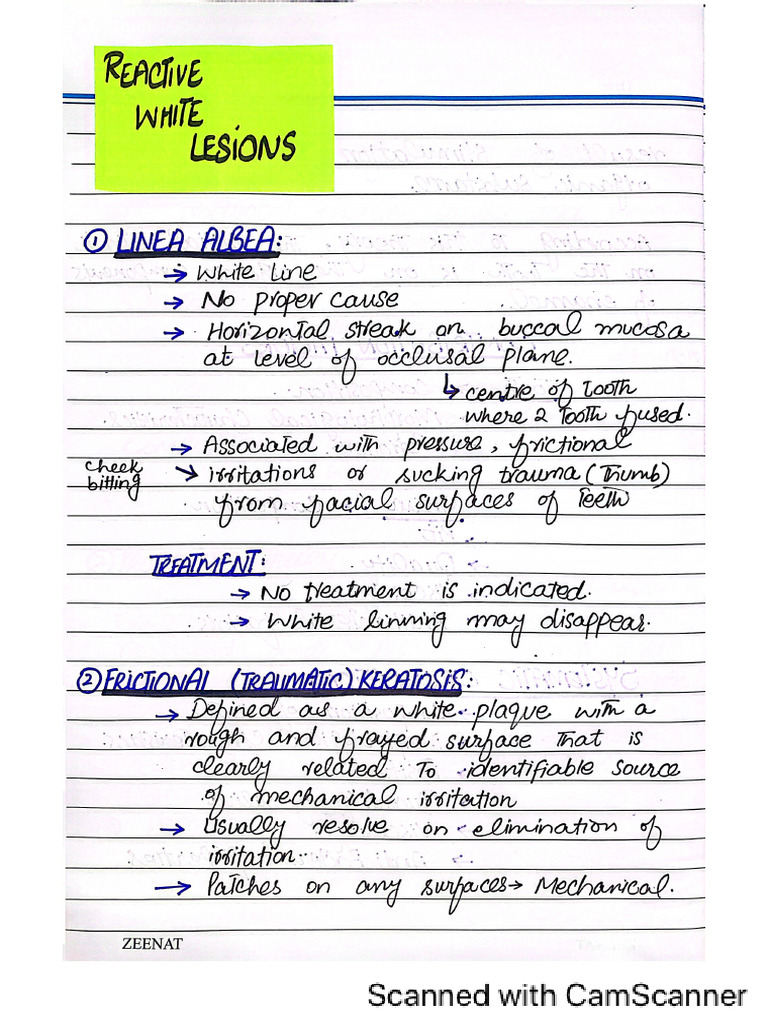 REACTIVE
WHITE
LESIONS
① LINEA ALBEA:
→ White line
→ No proper cause
→ Horizontal streak on buccal mucosa
at level of occlusal plane.
↳ centre of tooth
where 2 tooth fused.
→ Associated with pressure, frictional
cheek bitting → irritations or sucking trauma (Thumb)
from facial surfaces of Teeth
TREATMENT:
→ No treatment is indicated.
→ White linning may disappear.
② FRICTIONAL (TRAUMATIC) KERATOSIS:
→ Defined as a white plaque with a
rough and frayed surface that is
clearly related To identifiable source
of mechanical irritation
→ Usually resolve on elimination of
irritation.
→ Patches on any surfaces → Mechanical.
ZEENAT
Scanned with CamScanner